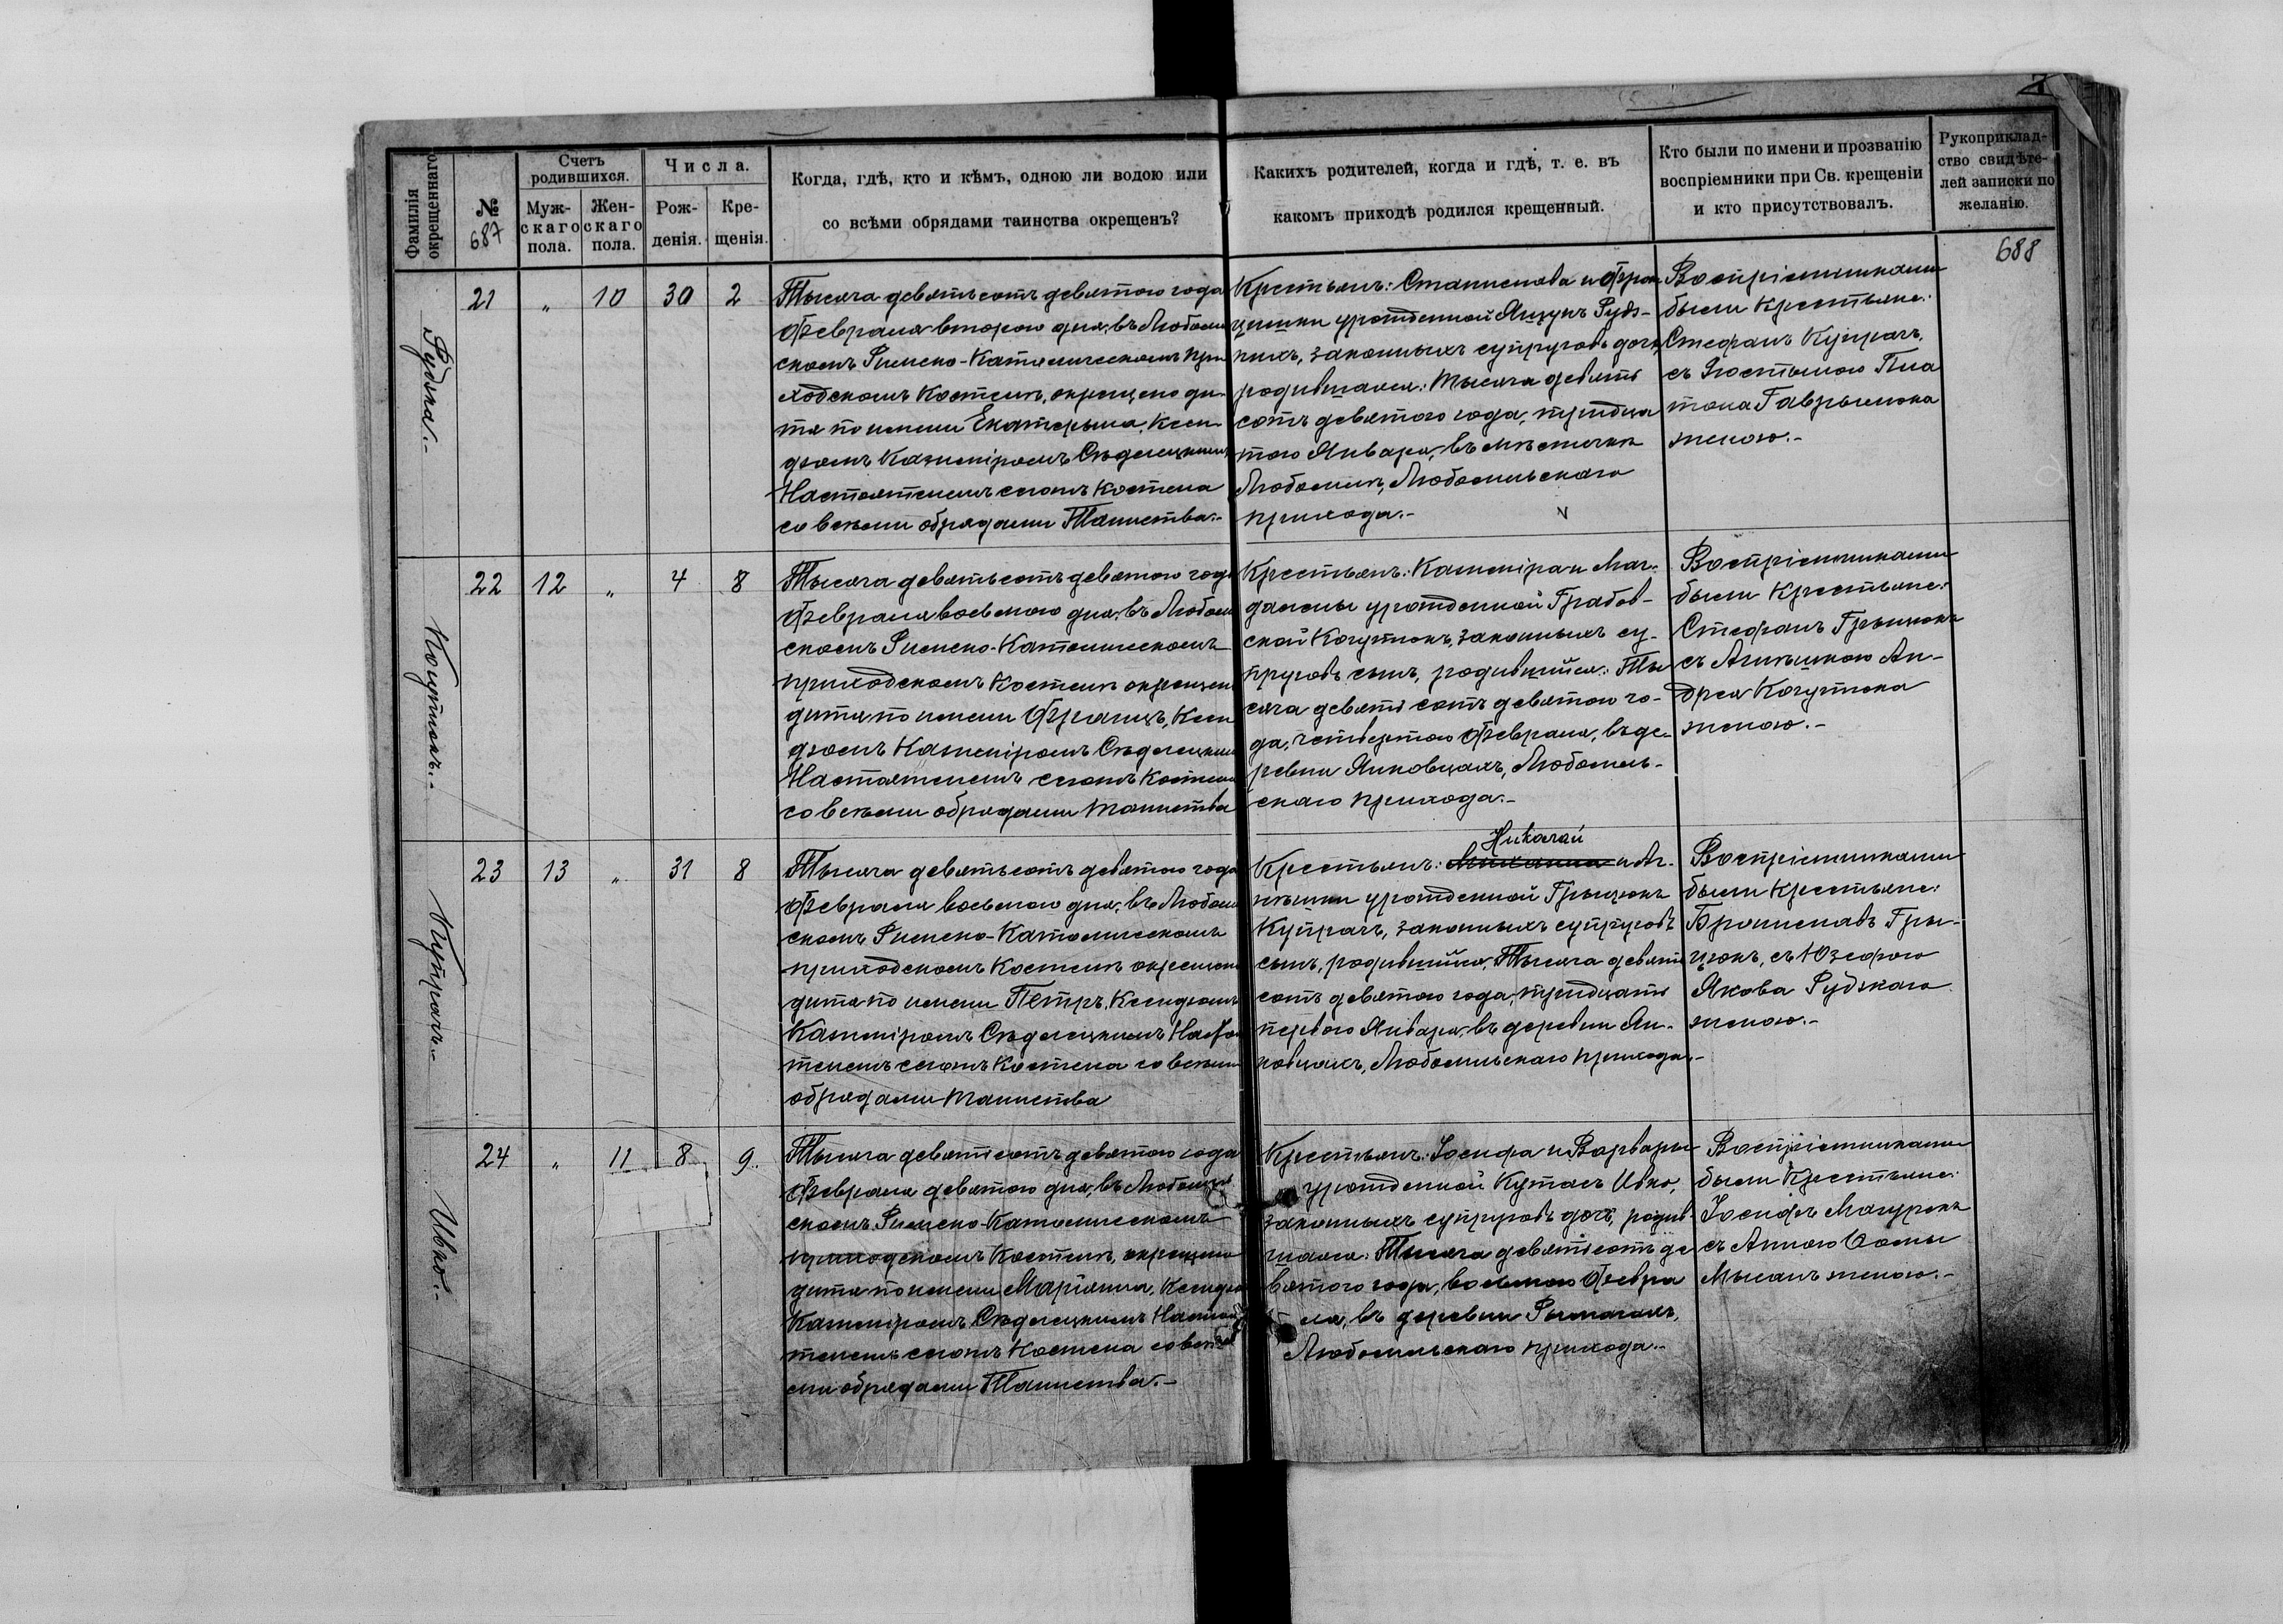 7
Фамилія окрещеннаго
№
687
Счетъ родившихся.
Муж-
скаго
пола.
Жен-
скаго
пола.
Числа.
Рож-
денія.
Кре-
щенія.
Когда, гдѣ, кто и кѣмъ, одною ли водою или
со всѣми обрядами таинства окрещенъ?
Какихъ родителей, когда и гдѣ, т. е. въ
какомъ приходѣ родился крещенный.
Кто были по имени и прозванію
воспріемники при Св. крещеніи
и кто присутствовалъ.
Рукоприклад-
ство свидѣте-
лей записки по
желанію.
688
Рудзка.-
21 " 10 30 2
Тысяча девятьсотъ девятого года
Февраля второго дня, въ Любомль
скомъ Римско-Католическомъ При
ходскомъ Костелѣ, окрещено ди-
тя по имени Екатерына, Ксен-
дзомъ Казиміромъ Сѣдлецкимъ,
Настоятелемъ сегожъ Костела
со всѣми обрядами Таинства.-
Крестьянъ: Станислава и Фран
цишки урожденной Ящукъ Рудз-
кихъ, законныхъ супруговъ дочь,
родившаяся: Тысяча девять
сотъ девятого года, тридца
того Января, въ мѣстечкѣ
Любомлѣ, Любомльскаго
прихода.-
Воспріемниками
были Крестьяне:
Стефанъ Купрачъ,
съ Юстыною Пла
тона Гаврылюка
женою.-
Когутюкъ.-
22 12 " 4 8
Тысяча девятьсотъ девятого года
Февраля восьмого дня, въ Любомль
скомъ Римско-Католическомъ
приходскомъ Костелѣ окрещено
дитя по имени Францъ, Ксен
дзомъ Казиміромъ Сѣдлецкимъ
Настоятелемъ сегожъ Костела
со всѣми обрядами Таинства
Крестьянъ: Казиміра и Маг-
далены урожденной Грабов-
ской Когутюкъ, законныхъ су-
пруговъ сынъ, родившійся: Ты
сяча девять сотъ девятого го-
да, четвертого Февраля, въ де-
ревни Янковцахъ, Любомль-
скаго прихода.-
Воспріемниками
были Крестьяне:
Стефанъ Грыцюкъ
съ Агнѣшкою Ан-
дрея Когутюка
женою.-
Купрачъ.-
23 13 " 31 8
Тысяча девятьсотъ девятого года
Февраля восьмого дня, въ Любомль
скомъ Римско-Католическомъ
приходскомъ Костелѣ окрещено
дитя по имени Петръ, Ксендзомъ
Казиміромъ Сѣдлецкимъ Настоя
телемъ сегожъ Костела со всѣми
обрядами Таинства
Николай
Крестьянъ: и Аг-
нѣшки урожденной Грыцюкъ
Купрачъ, законныхъ супруговъ
сынъ, родившійся, Тысяча девять
сотъ девятого года, тридцать
первого Января, въ деревни Ян-
ковцахъ, Любомльскаго прихода.-
Воспріемниками
были Крестьяне:
Брониславъ Гры-
цюкъ, съ Юзефою
Якова Рудзкаго
женою.-
Ивко.-
24 " 11 8 9.
Тысяча девятьсотъ девятого года
Февраля девятого дня, въ Любомль
скомъ Римско-Католическомъ
приходскомъ Костелѣ, окрещено
дитя по имени Маріянна, Ксендзо
Казиміромъ Сѣдлецкимъ Настоя
телемъ сегожъ Костела со всѣ
ми обрядами Таинства.-
Крестьянъ: Іосифа и Варвары
урожденной Куталъ Ивко,
законныхъ супруговъ дочь, родив-
шаяся: Тысяча девятьсотъ де
вятого года, восьмого Февра
ля, въ деревни Рымачахъ,
Любомльскаго прихода.-
Воспріемниками
были Крестьяне:
Іосифъ Мазурокъ
съ Анною Ѳомы
женою.-